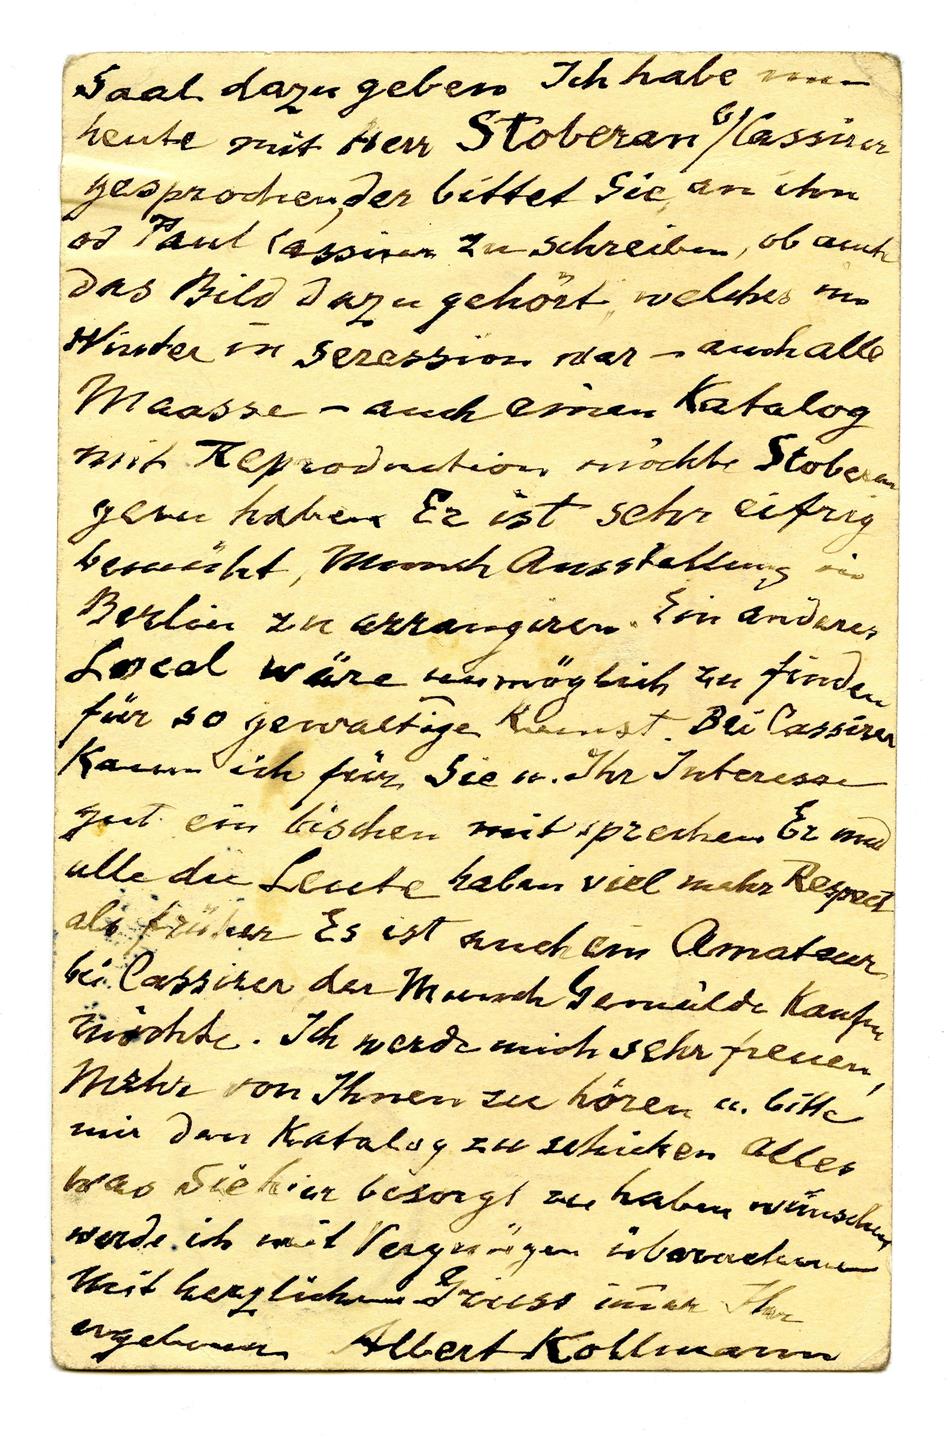 Saal dazu geben Ich habe nun
heute mit Herr Stoberan b/Cassirer
gesprochen, der bittet Sie, an ihn
od Paul Cassirer zu schreiben, ob auch
das Bild dazu gehört, welches im
Winter in Sezession war – auch alle
Maasse – auch einen Katalog
mit Reproduction möchte Stoberan
gern haben Er ist sehr eifrig
bemüht, Munch Ausstellung in
Berlin zu arrangiren. Ein anderes
Local wäre unmöglich zu finden
für so gewaltige Kunst. Bei Cassirer
kann ich für Sie u. Ihr Interesse
gut ein bischen mitsprechen Er und
alle die Leute haben viel mehr Respect
als früher Es ist auch ein Amateur
bei Cassirer der Munch Gemälde kaufen
möchte. Ich werde mich sehr freuen,
Mehr von Ihnen zu hören u. bitte
mir den Katalog zu schicken Alles
was Sie hier besorgt zu haben wünschen
werde ich mit Vergnügen übernehmen
Mit herzlichem Gruss im̄er Ihr
ergebener Albert Kollmann